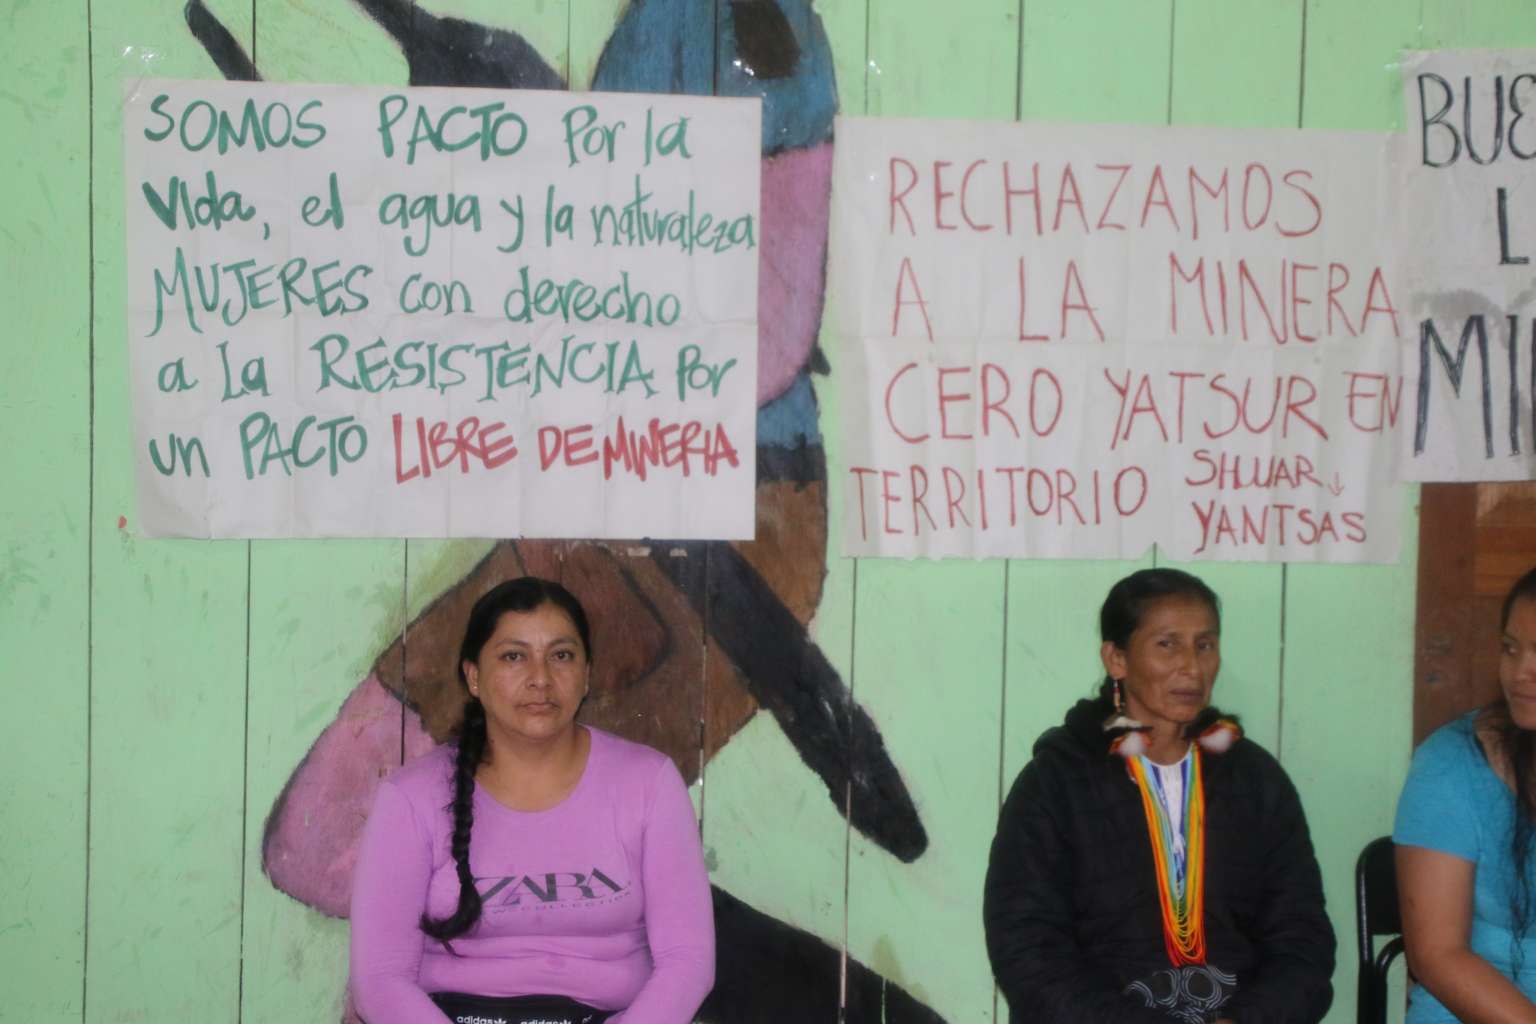 SOMOS PACTO Por la
vida, el agua y la naturaleza
MUJERES con derecho
a la RESISTENCIA Por
un PACTO LIBRE DE MINERIA
RECHAZAMOS
A LA MINERA
CERO YATSUR EN
TERRITORIO SHUAR ↓
YANTSAS
BUE
L
MI
ZARA
adidas adidas